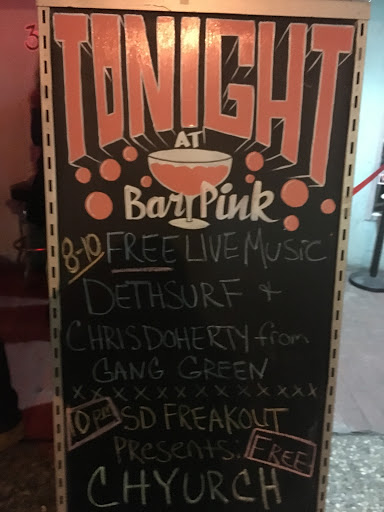 TONIGHT
AT
Bar Pink
8-10 FREE LIVE MUSIC
DETHSURF +
CHRIS DOHERTY from
GANG GREEN
xxxxxxxxxxxxxxx
10 PM SD FREAKOUT
Presents: FREE
CHYURCH